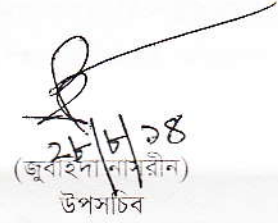 ২৮/৮/১৪
(জুবাইদা নাসরীন)
উপসচিব